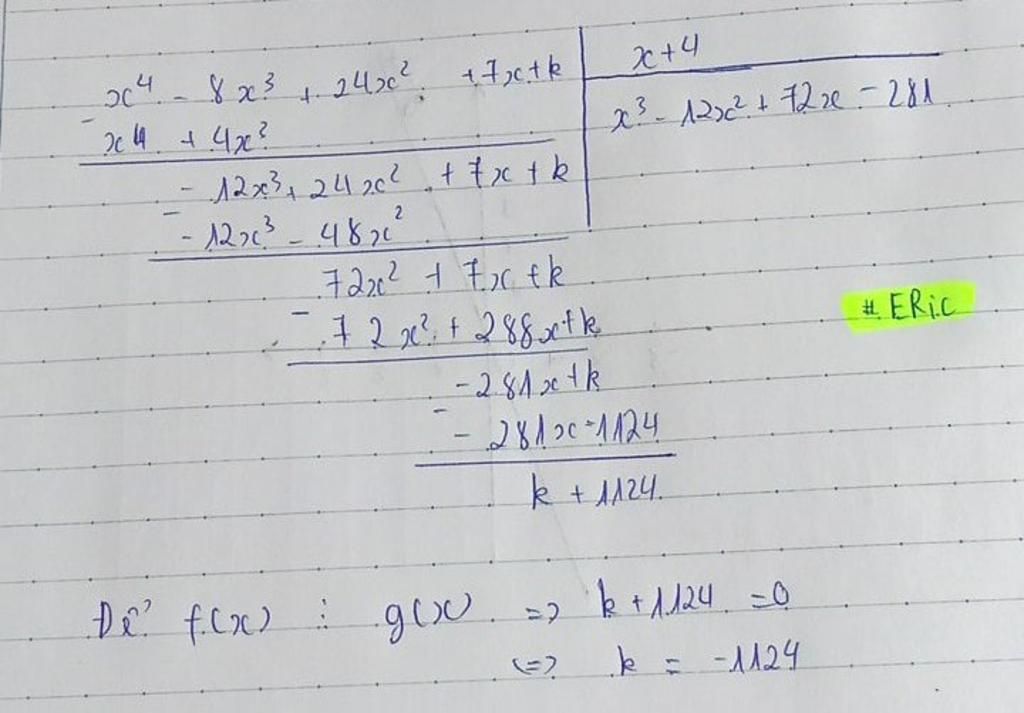 x⁴ - 8x³ + 24x² + 7x + k | x + 4
- x⁴ + 4x³ | x³ - 12x² + 72x - 281
- 12x³ + 24x² + 7x + k
- - 12x³ - 48x²
72x² + 7x + k
- 72x² + 288x + k
# ERic
- 281x + k
- - 281x - 1124
k + 1124
Để f(x) ⋮ g(x) => k + 1124 = 0
<=> k = -1124